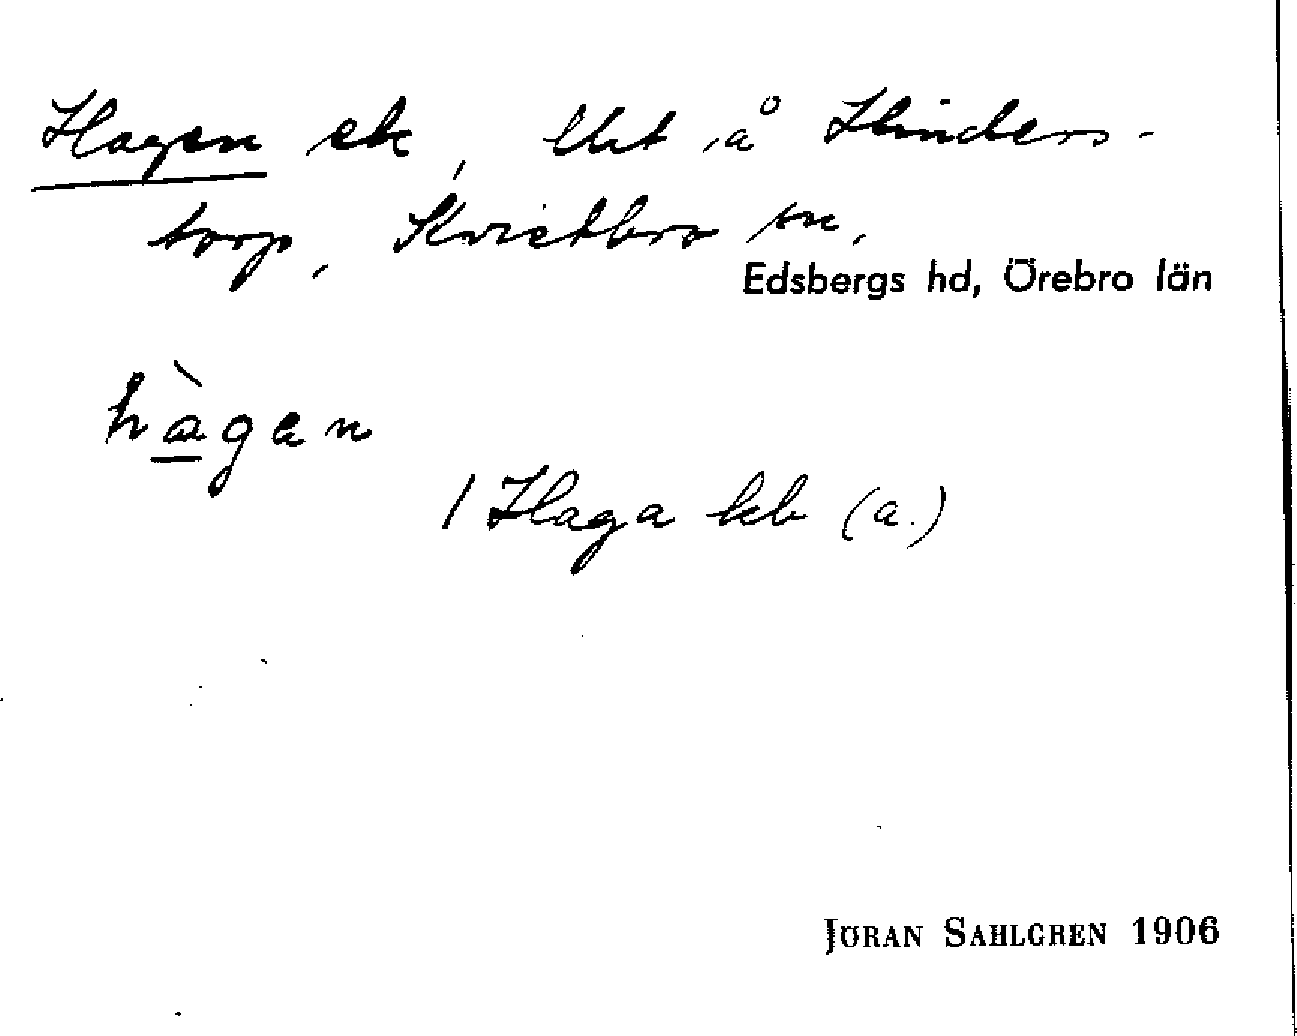 Hagen ek, lht å Hinders-
torp, Kvistbro sn,
Edsbergs hd, Örebro län
hàgan
/ Haga kb (a.)
JÖRAN SAHLGREN 1906